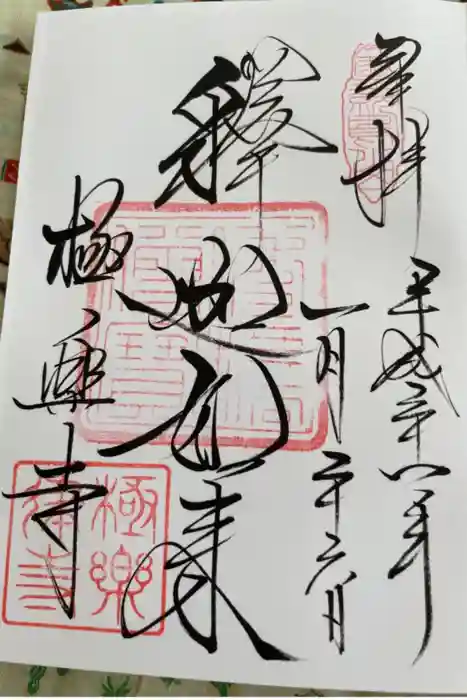 奉拝
平成二十八年
一月二十六日
釋迦如来
極楽寺
極樂律寺